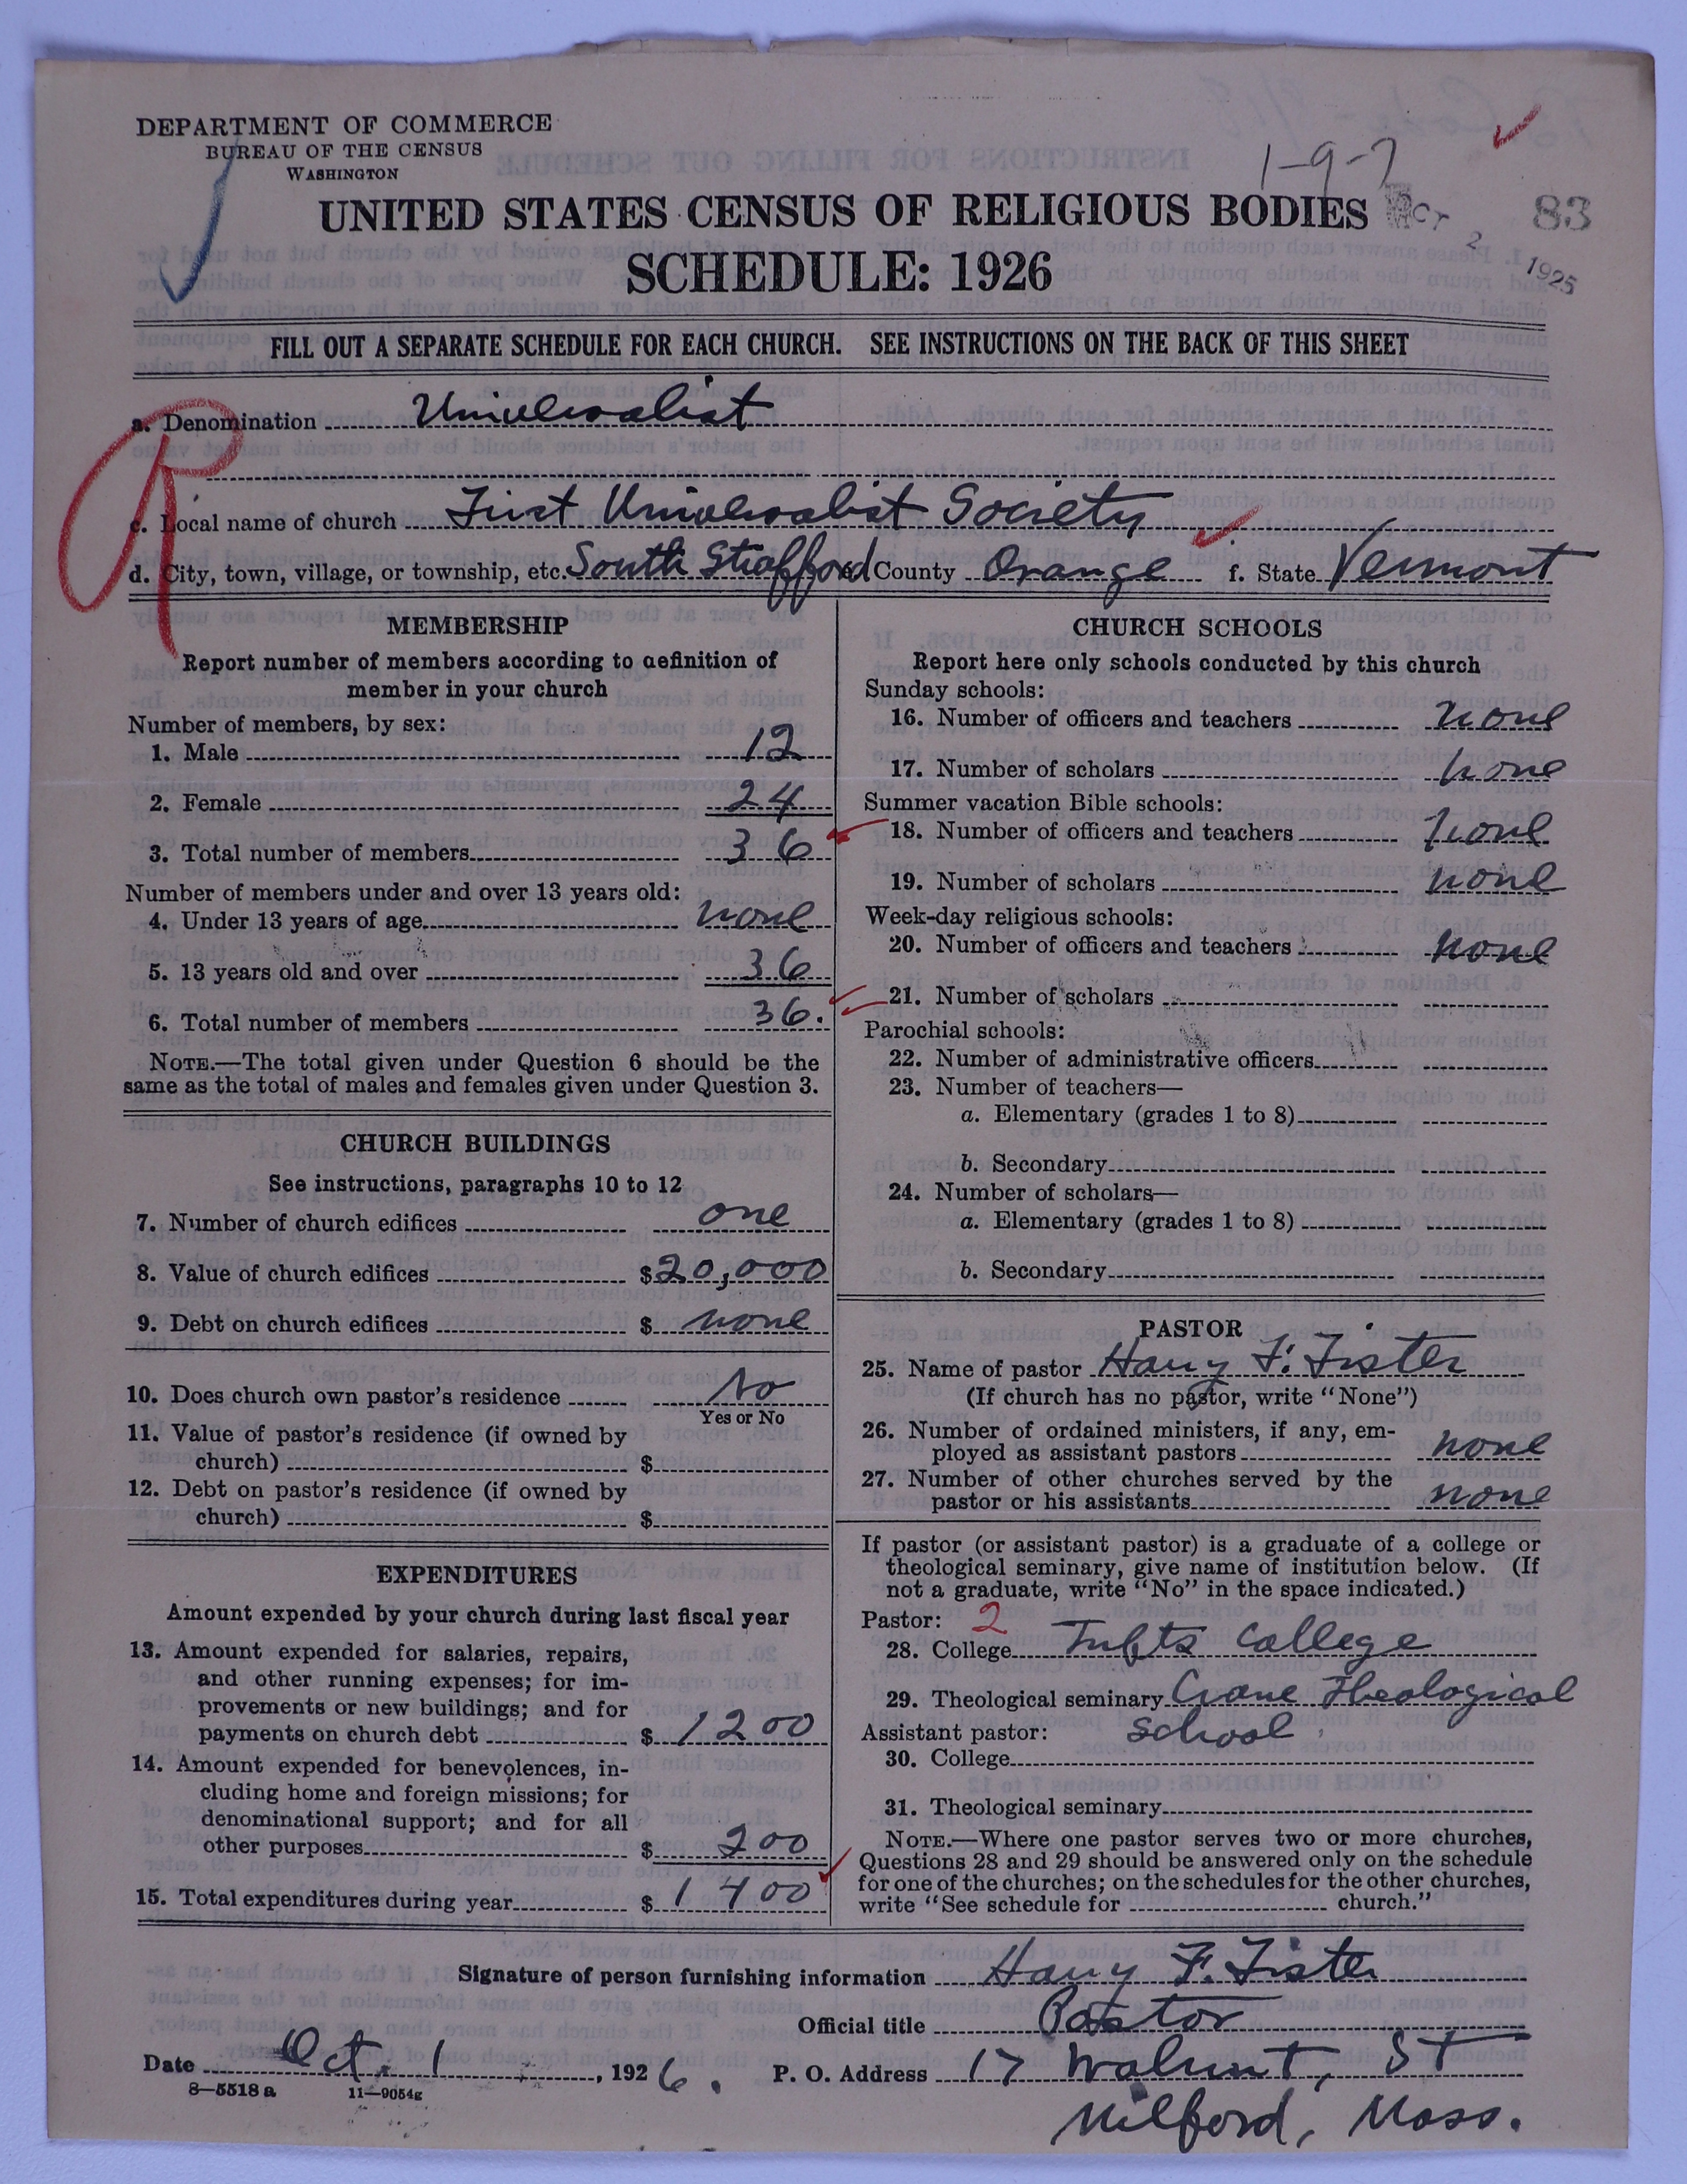 DEPARTMENT OF COMMERCE
BUREAU OF THE CENSUS
WASHINGTON
1-9-7
UNITED STATES CENSUS OF RELIGIOUS BODIES
OCT 2 1925
83
SCHEDULE: 1926
FILL OUT A SEPARATE SCHEDULE FOR EACH CHURCH. SEE INSTRUCTIONS ON THE BACK OF THIS SHEET
a. Denomination Universalist
c. Local name of church First Universalist Society
d. City, town, village, or township, etc. South Strafford e. County Orange f. State Vermont
MEMBERSHIP
Report number of members according to definition of
member in your church
Number of members, by sex:
1. Male 12
2. Female 24
3. Total number of members 36
Number of members under and over 13 years old:
4. Under 13 years of age none
5. 13 years old and over 36
6. Total number of members 36.
NOTE.—The total given under Question 6 should be the
same as the total of males and females given under Question 3.
CHURCH BUILDINGS
See instructions, paragraphs 10 to 12
7. Number of church edifices one
8. Value of church edifices $20,000
9. Debt on church edifices $ none
10. Does church own pastor's residence No
Yes or No
11. Value of pastor's residence (if owned by
church) $
12. Debt on pastor's residence (if owned by
church) $
EXPENDITURES
Amount expended by your church during last fiscal year
13. Amount expended for salaries, repairs,
and other running expenses; for im-
provements or new buildings; and for
payments on church debt $ 1200
14. Amount expended for benevolences, in-
cluding home and foreign missions; for
denominational support; and for all
other purposes $ 200
15. Total expenditures during year $ 1400
CHURCH SCHOOLS
Report here only schools conducted by this church
Sunday schools:
16. Number of officers and teachers none
17. Number of scholars none
Summer vacation Bible schools:
18. Number of officers and teachers none
19. Number of scholars none
Week-day religious schools:
20. Number of officers and teachers none
21. Number of scholars
Parochial schools:
22. Number of administrative officers
23. Number of teachers—
a. Elementary (grades 1 to 8)
b. Secondary
24. Number of scholars—
a. Elementary (grades 1 to 8)
b. Secondary
PASTOR
25. Name of pastor Harry F. Fister
(If church has no pastor, write "None")
26. Number of ordained ministers, if any, em-
ployed as assistant pastors none
27. Number of other churches served by the
pastor or his assistants none
If pastor (or assistant pastor) is a graduate of a college or
theological seminary, give name of institution below. (If
not a graduate, write "No" in the space indicated.)
Pastor: 2
28. College Tufts College
29. Theological seminary Crane Theological
Assistant pastor: School
30. College
31. Theological seminary
NOTE.—Where one pastor serves two or more churches,
Questions 28 and 29 should be answered only on the schedule
for one of the churches; on the schedules for the other churches,
write "See schedule for church."
Signature of person furnishing information Harry F. Fister
Official title Pastor
Date Oct. 1, 1926. P. O. Address 17 Walnut, St
8—5518a 11—9054g
Milford, Mass.